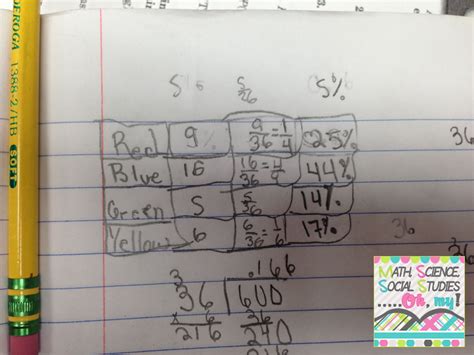 5 5/36 5%
Red 9% 9/36=1/4 25%
36
Blue 16 16/36=4/9 44%
Green 5 5/36 14%
Yellow 6 6/36=1/6 17%
36
.166
3
36 600
x 6 36
216 240
DEROGA 1388-2/HB SOFT
MATH, SCIENCE,
SOCIAL STUDIES
.....Oh, my!